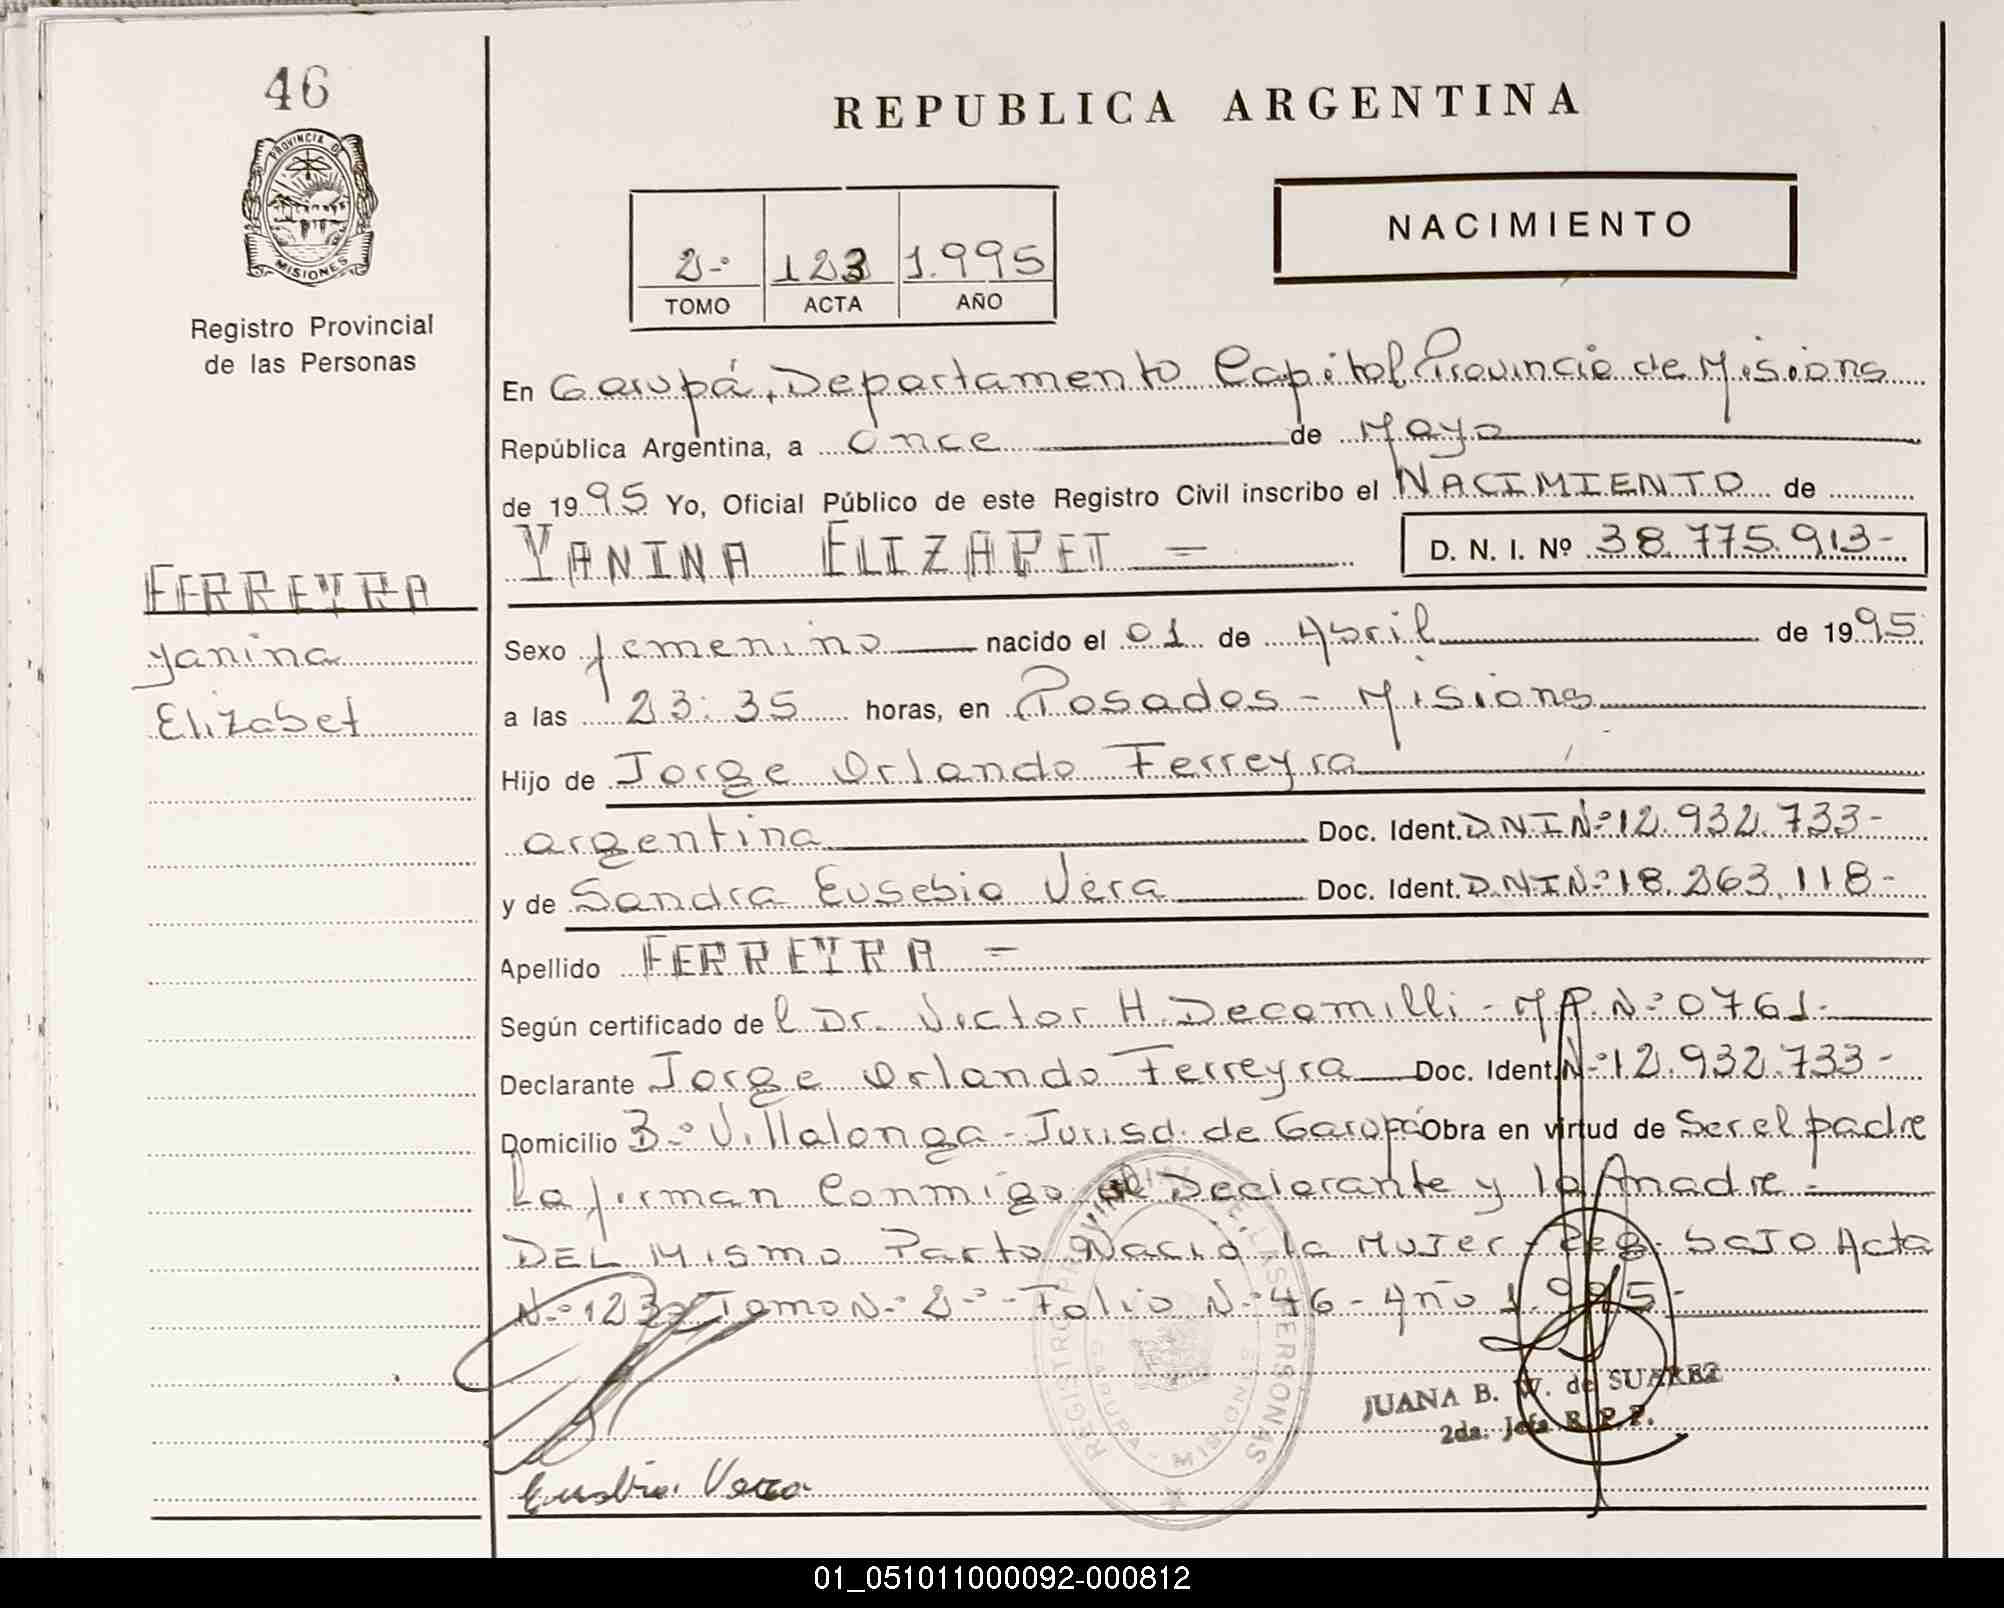 46
PROVINCIA DE
MISIONES
Registro Provincial
de las Personas
REPUBLICA ARGENTINA
NACIMIENTO
2-º 123 1.995
TOMO ACTA AÑO
En Garupá, Departamento Capital Provincia de Misions
República Argentina, a once de Mayo
de 1995 Yo, Oficial Público de este Registro Civil inscribo el NACIMIENTO de
YANINA ELIZABET = D. N. I. Nº 38.775.913-
FERREYRA
Yanina
Elizabet
Sexo femenino nacido el 01 de Abril de 1995
a las 23:35 horas, en Posadas - Misions
Hijo de Jorge Orlando Ferreyra
argentina Doc. Ident. DNI Nº 12.932.733-
y de Sandra Eusebia Vera Doc. Ident. DNI Nº 18.263.118-
Apellido FERREYRA =
Según certificado del Dr. Victor H. Decamilli - MP. Nº 0761-
Declarante Jorge Orlando Ferreyra Doc. Ident. Nº 12.932.733-
Domicilio Bº Villalonga - Jurisd. de Garupá Obra en virtud de Ser el padre
La firman Conmigo el Declarante y la Madre -
DEL Mismo Parto Nació la Mujer Reg. bajo Acta
Nº 123 Tomo Nº 2º - Folio Nº 46 - Año 1.995-
REGISTRO PROVINCIAL DE LAS PERSONAS
GARUPA - MISIONES
JUANA B. W. de SUAREZ
2da. Jefa R. P. P.
Eusebia Vera
01_051011000092-000812